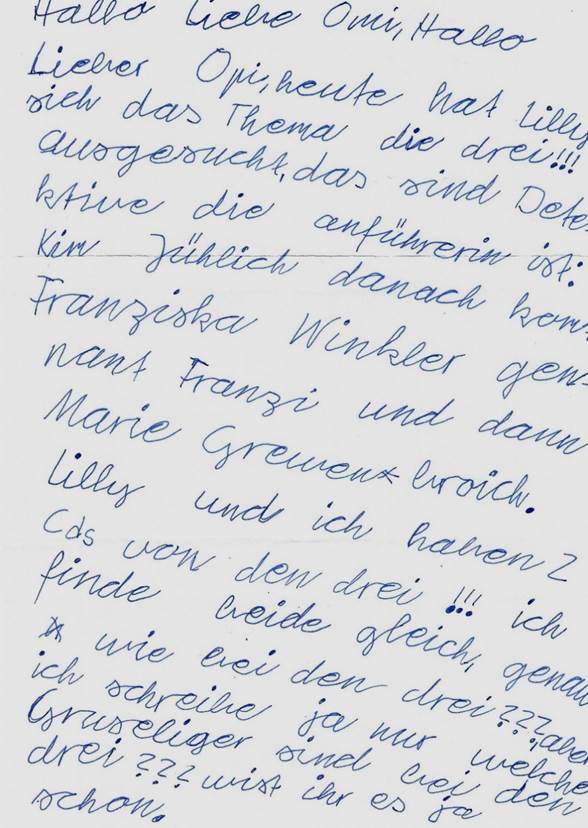 Hallo Liebe Omi, Hallo
Lieber Opi, heute hat Lilly
sich das Thema die drei!!!
ausgesucht, das sind Dete
ktive die anführerin ist:
Kim Jühlich danach kom
Franziska Winkler gen
nant Franzi und dann
Marie Grewen* broich.
Lilly und ich haben 2
Cds von den drei !!! ich
finde beide gleich, genau
* wie bei den drei??? aber
ich schreibe ja nur welche
Gruseliger sind bei den
drei ??? wist ihr es ja
schon.